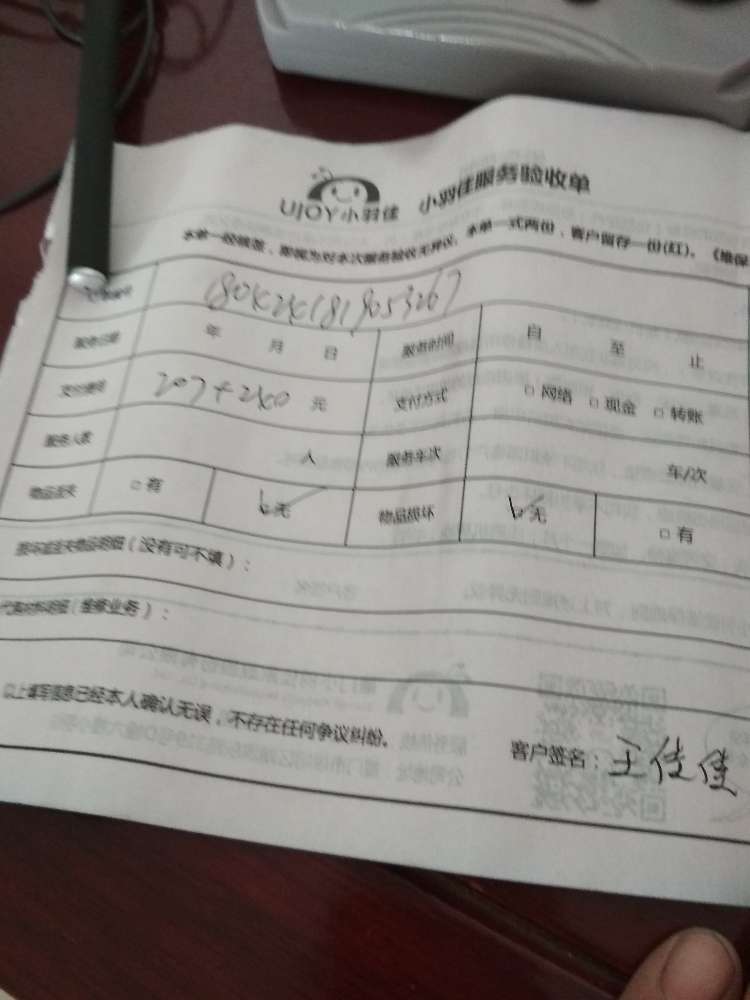 UJOY小羽佳 小羽佳服务验收单
本单一经确签,即视为对本次服务验收无异议,本单一式两份,客户留存一份(红)。《维保
服务日期 年 月 日 服务时间 自 至 止
支付费用 207+240 元 支付方式 □ 网络 □ 现金 □ 转账
服务人数 人 服务车次 车/次
物品丢失 □ 有 无 物品损坏 无 □ 有
损坏或丢失物品明细(没有可不填):
代购材料明细(维修业务):
以上填写信息已经本人确认无误,不存在任何争议纠纷。
客户签名:王佳佳